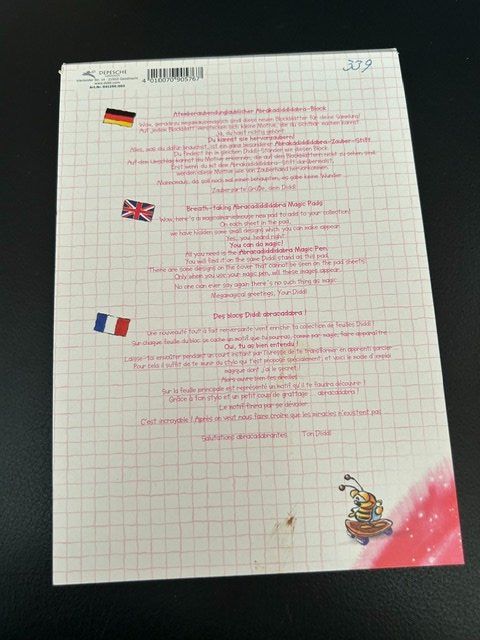 DEPESCHE
Vierlander Str. 14 · 21502 Geesthacht
www.diddl.com
Art.Nr. 041200.002
4 010070 905767
339
Atemberaubendunglaublicher Abrakadiddldabra-Block
Wow, geradezu megakäsemagisch sind diese neuen Blockblätter für deine Sammlung!
Auf jedem Blockblatt verstecken sich kleine Motive, die du sichtbar machen kannst.
Ja, du hast richtig gehört:
Du kannst sie hervorzaubern!
Alles, was du dafür brauchst, ist ein ganz besonderer Abrakadiddldabra-Zauber-Stift.
Du findest ihn in gleichen Diddl-Ständer wie diesen Block.
Auf dem Umschlag kannst du Motive erkennen, die auf den Blockblättern nicht zu sehen sind.
Erst wenn du mit dem Abrakadiddldabra-Stift darübermalst,
werden diese Motive wie von Zauberhand hervorkommen.
Mannomaus, da soll noch mal einer behaupten, es gäbe keine Wunder.
Zauberzarte Grüße, dein Diddl
Breath-taking Abracadiddldabra Magic Pads
Wow, here's a magicmarvelmouse new pad to add to your collection!
On each sheet in the pad,
we have hidden some small designs which you can make appear.
Yes, you heard right:
You can do magic!
All you need is the Abracadiddldabra Magic Pen.
You will find it on the same Diddl stand as this pad.
There are some designs on the cover that cannot be seen on the pad sheets.
Only when you use your magic pen, will these images appear.
No one can ever say again there's no such thing as magic.
Megamagical greetings, Your Diddl
Des blocs Diddl abracadabra !
Une nouveauté tout à fait renversante vient enrichir ta collection de feuilles Diddl !
Sur chaque feuille du bloc se cache un motif que tu pourras, comme par magie, faire apparaître.
Oui, tu as bien entendu !
Laisse-toi envoûter pendant un court instant par l'ivresse de te transformer en apprenti sorcier ...
Pour cela il suffit de te munir du stylo qui t'est proposé spécialement, et voici le mode d'emploi
magique dont j'ai le secret.
Alors ouvre bien tes oreilles :
Sur la feuille principale est représenté un motif qu'il te faudra découvrir !
Grâce à ton stylo et un petit coup de grattage ... abracadabra !
Le motif finira par se dévoiler.
C'est incroyable ! Après on veut nous faire croire que les miracles n'existent pas.
Salutations abracadabrantes Ton Diddl